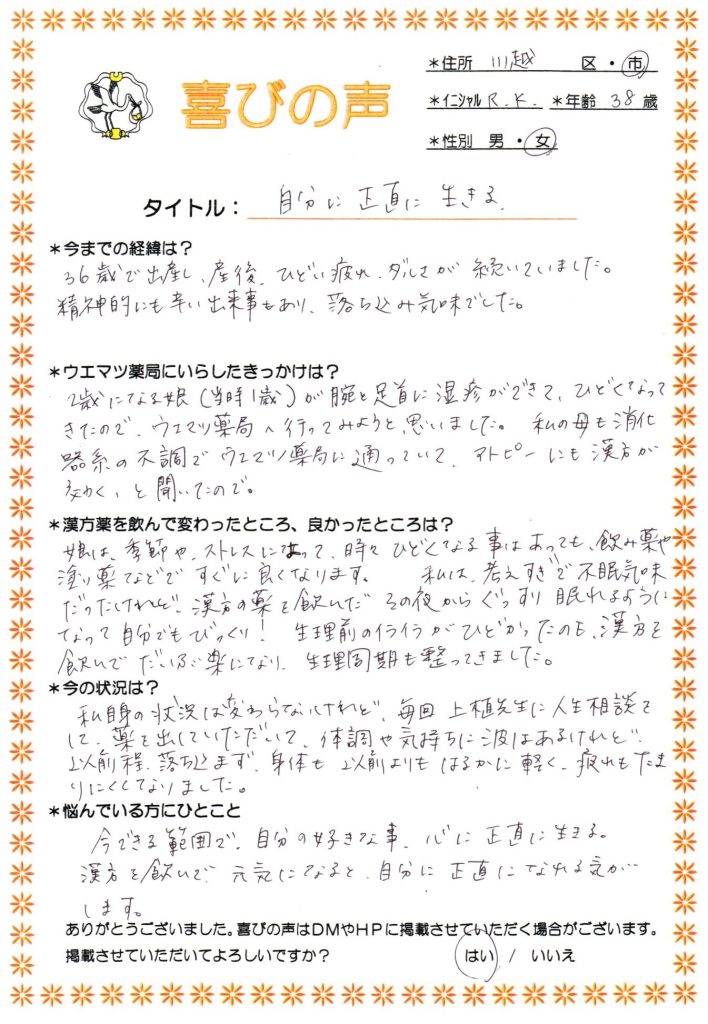 喜びの声
*住所 川越 区・市
*イニシャル R.K. *年齢 38 歳
*性別 男・女
タイトル： 自分に正直に生きる.
*今までの経緯は？
36歳で出産し、産後、ひどい疲れ、ダルさが続いていました。
精神的にも辛い出来事もあり、落ち込み気味でした。
*ウエマツ薬局にいらしたきっかけは？
2歳になる娘（当時1歳）が腕と足首に湿疹ができて、ひどくなって
きたので、ウエマツ薬局へ行ってみようと思いました。私の母も消化
器系の不調でウエマツ薬局に通っていて、アトピーにも漢方が
効く、と聞いたので。
*漢方薬を飲んで変わったところ、良かったところは？
娘は、季節や、ストレスによって、時々ひどくなる事はあっても、飲み薬や
塗り薬などですぐに良くなります。 私は、考えすぎで不眠気味
だったけれど、漢方の薬を飲んだその夜からぐっすり眠れるように
なって自分でもびっくり！ 生理前のイライラがひどかったのも、漢方を
飲んでだいぶ楽になり、生理周期も整ってきました。
*今の状況は？
私自身の状況は変わらないけれど、毎回上植先生に人生相談を
して、薬を出していただいて、体調や気持ちに波はあるけれど、
以前程、落ち込まず、身体も以前よりもはるかに軽く、疲れもたま
りにくくなりました。
*悩んでいる方にひとこと
今できる範囲で、自分の好きな事、心に正直に生きる。
漢方を飲んで、元気になると、自分に正直になれる気が
します。
ありがとうございました。喜びの声はDMやHPに掲載させていただく場合がございます。
掲載させていただいてよろしいですか？ はい / いいえ